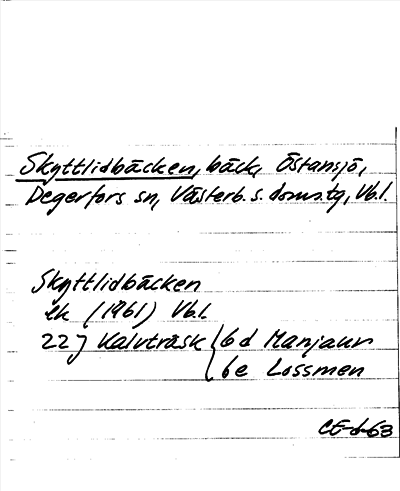 Skyttlidbäcken, bäck, Östansjö,
Degerfors sn, Västerb. s. doms.tg, Vb.l.
Skyttlidbäcken
ek (1961) Vb.l.
22J Kalvträsk { 6d Manjaur
6e Lossmen
CE-6-63